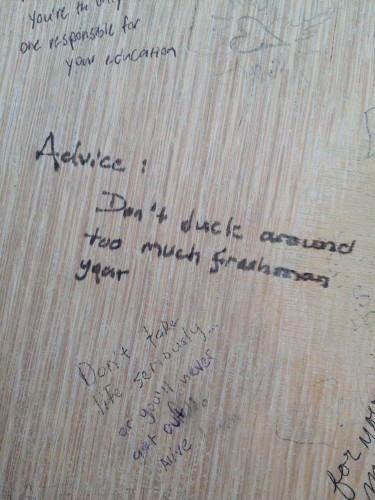 you're the only
one responsible for
your education
Advice:
Don't duck around
too much freshman
year
Don't take
life seriously...
or you'll never
get out
alive
for you